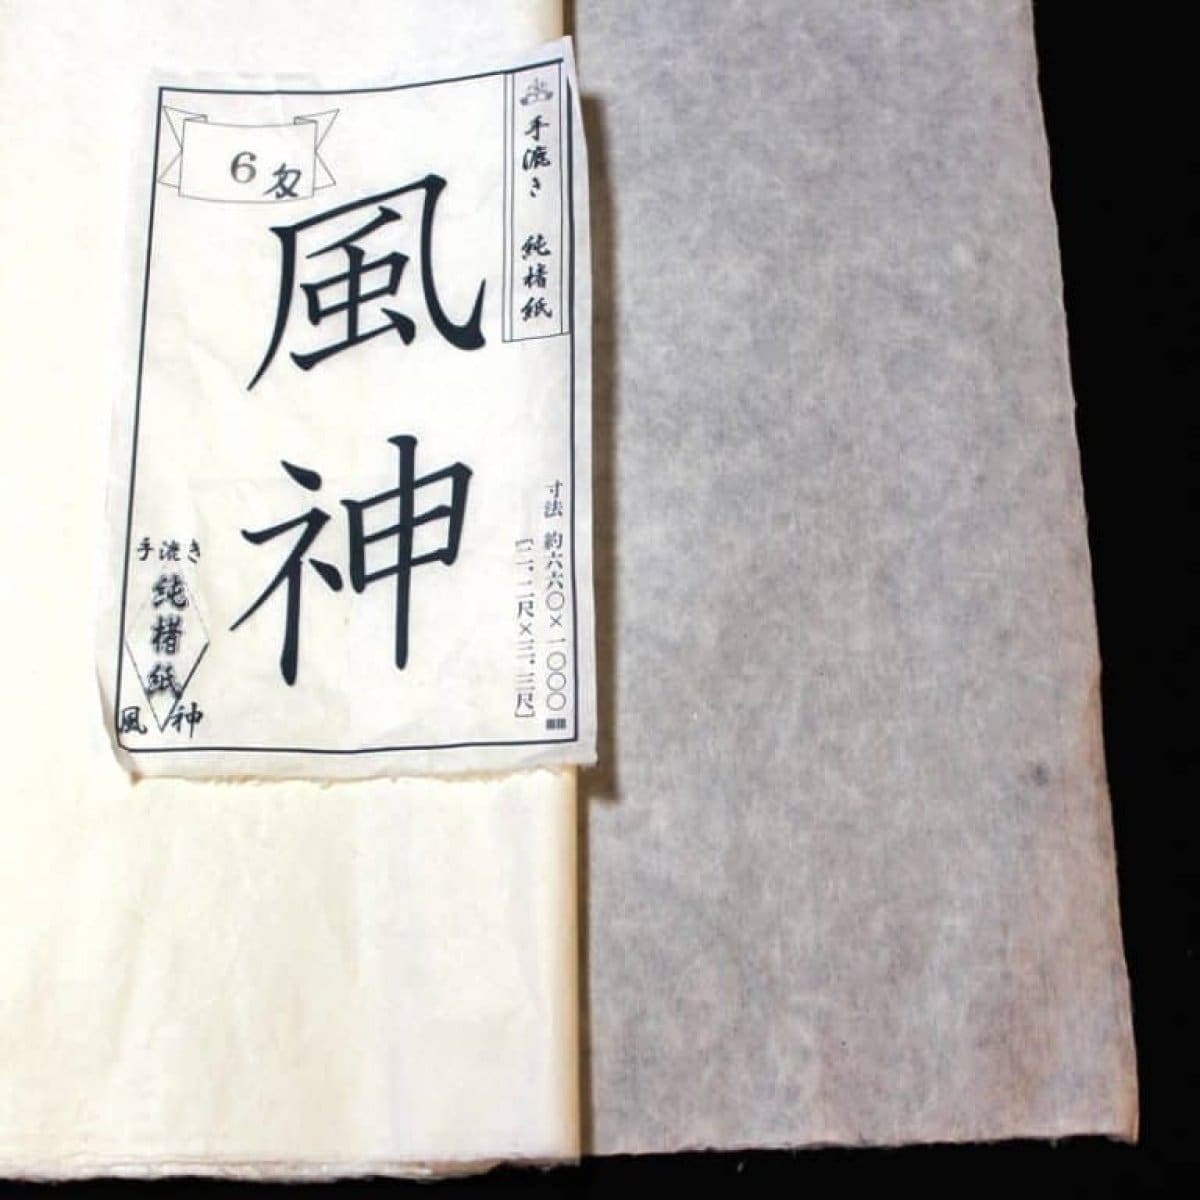 手漉き 純楮紙
6匁
風神
寸法 約六六〇×一〇〇〇㎜
[二.二尺×三.三尺]
手漉き
純楮紙
風神